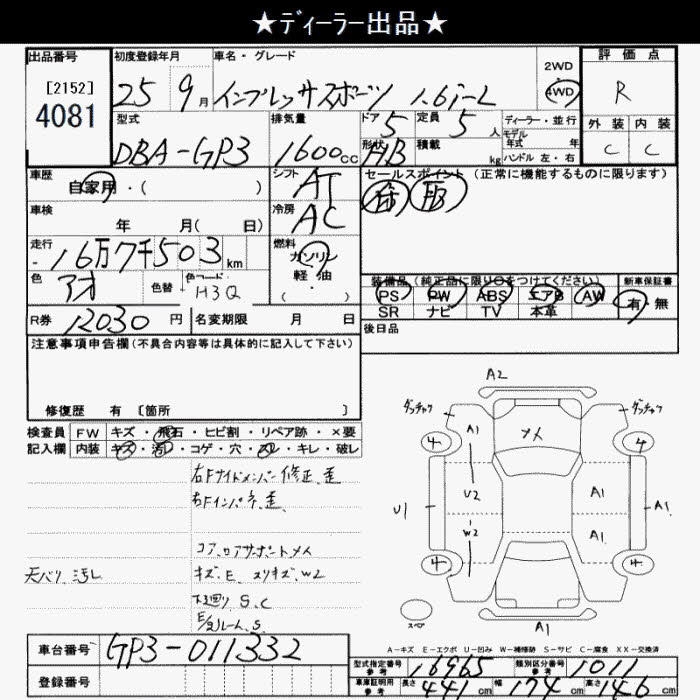 ★ディーラー出品★
出品番号 初度登録年月 車名・グレード 2WD 評価点
[2152] 25 9月 インプレッサスポーツ 1.6i-L 4WD R
4081
型式 排気量 ドア 5 定員 5人 ディーラー・並行 外装 内装
モデル年式 年
DBA-GP3 1600cc 形状 HB 積載 kg ハンドル 左・右 C C
車歴 シフト セールスポイント(正常に機能するものに限ります)
自家用・( ) AT
車検 冷房
年 月(日) AC
走行 燃料
16万7千503km ガソリン
軽・油
・
色 アオ 色替 色コード H3Q
装備品(純正品に限り○をつけてください) 新車保証書
PS PW ABS エアB AW 有・無
SR ナビ TV 本革
R券 12030円 名変期限 月 日 後日品
注意事項申告欄(不具合内容等は具体的に記入して下さい)
修復歴 有 [箇所 ]
検査員 FW キズ・飛石・ヒビ割・リペア跡・×要
記入欄 内装 キズ・汚・コゲ・穴・スレ・キレ・破レ
右Fサイドメンバー修正、歪
右Fインパネ、歪
コアロアサポートメメ
天バリ 汚レ キズ.E. スリキズ.W2
下廻り.S.C
E/gルーム.S
A2
ダッチャク ダッチャク
4 A1 メメ 4
U2 A1
U1 A1
W2 A1
4 4
スペア A1
A-キズ E-エクボ U-凹み W-補修跡 S-サビ C-腐食 XX-交換済
車台番号 GP3-011332
登録番号
型式指定番号 参考 16965 類別区分番号 参考 1011
車庫証明用 参考 長さ 441cm 幅 174cm 高さ 146cm